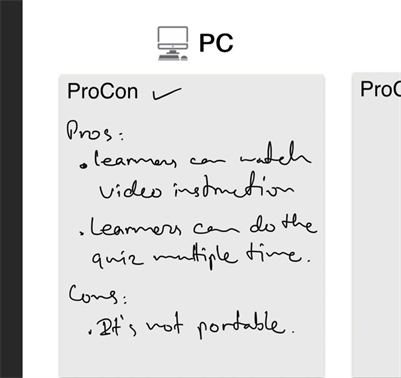 PC
ProCon ✓
Pros:
. learners can watch
video instruction
. Learners can do the
quiz multiple time.
Cons:
. It's not portable.
ProC